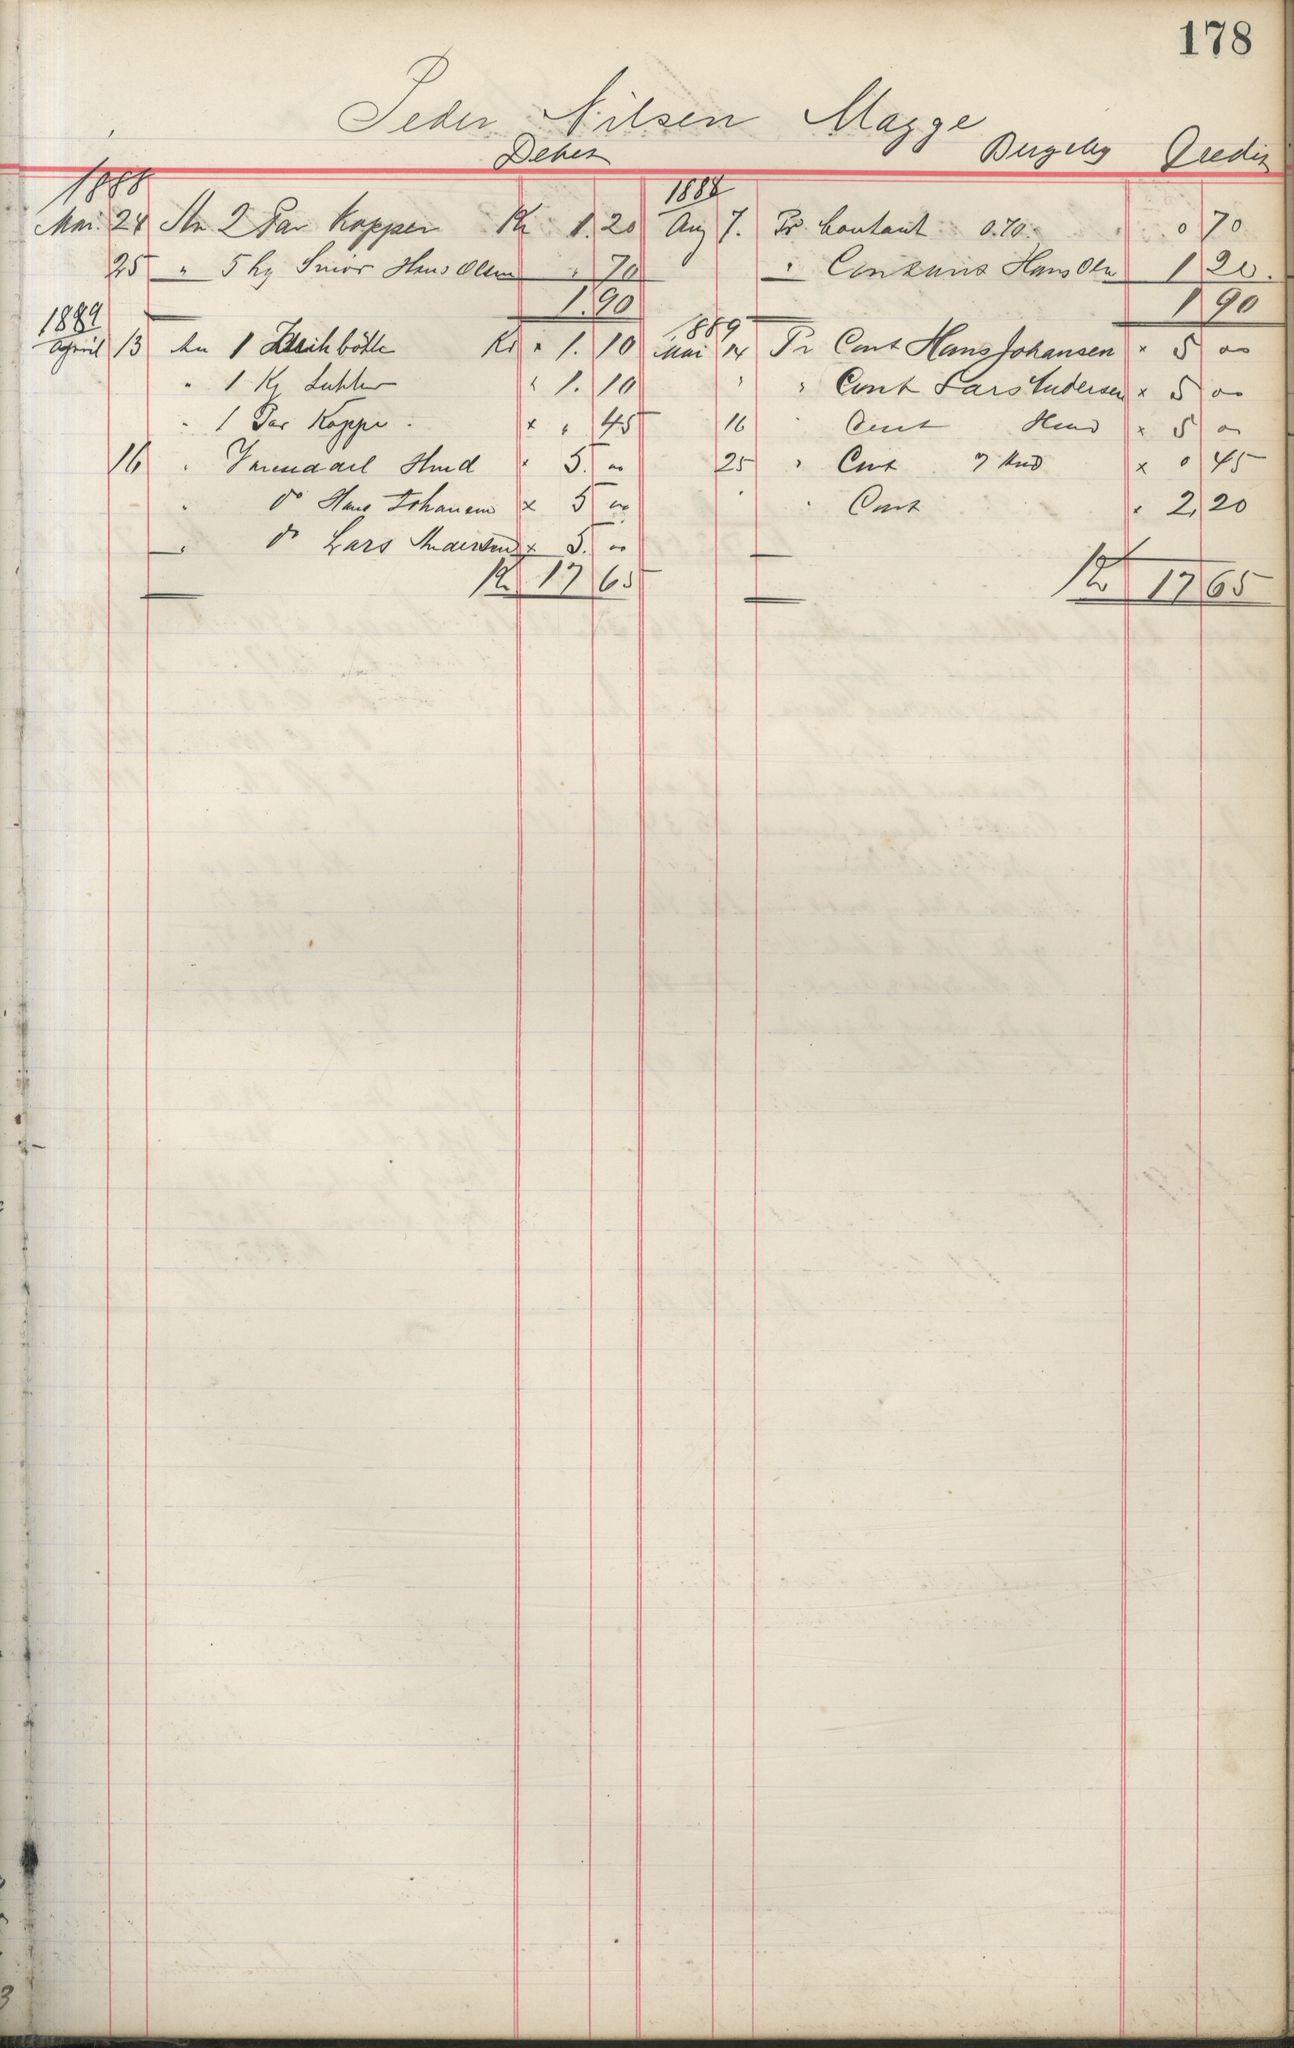 178
Peder Nilsen Magge
Debet Bergeby Credit
1888
Mai 24 An 2 Par Kopper Kr 1.20
25 " 5 kg Smör Hans Olsen " 70
1.90
1889
April 13 An 1 bötte Kr " 1.10
" 1 Kg " 1.10
" 1 Par Koppe. × " 45
16 " Hmd × 5.00
" do Hans Johansen × 5 00
" do Lars Andersen × 5.00
Kr 17 65
1888
Aug 7. Pr Contant 0.70. 0 70
" Hans Olsen 1 20.
1 90
1889
Mai 14 Pr Cont Hans Johansen × 5 00
" " Cont Lars Andersen × 5 00
16 Cont Hmd × 5 00
25 " Cont × 0 45
" " Cont × 2,20
Kr 17 65